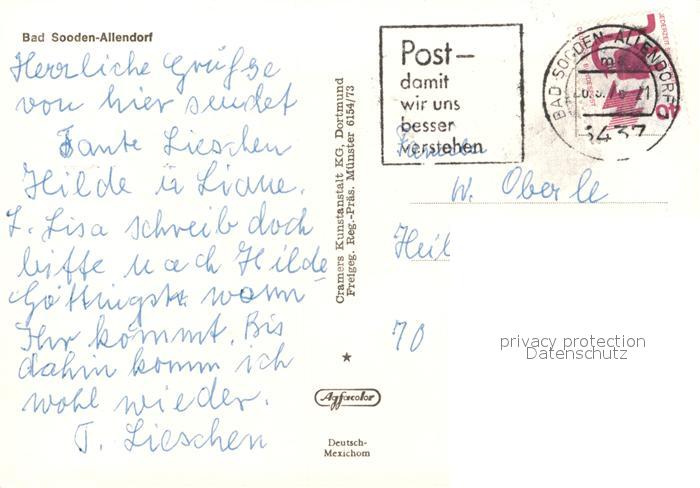 Bad Sooden-Allendorf
Herrliche Grüße
von hier sendet
Tante Lieschen
Hilde u Liane.
L. Lisa schreib doch
bitte nach Hilde
Göttingstr wann
Ihr kommt. Bis
dahin komm ich
wohl wieder.
T. Lieschen
Cramers Kunstanstalt KG, Dortmund
Freigeg. Reg.-Präs. Münster 6154/73
Agfacolor
Deutsch-
Mexichom
Post-
damit
wir uns
besser
verstehen
BAD SOODEN-ALLENDORF
3437
40
Familie
W. Oberle
Heil
70
privacy protection
Datenschutz